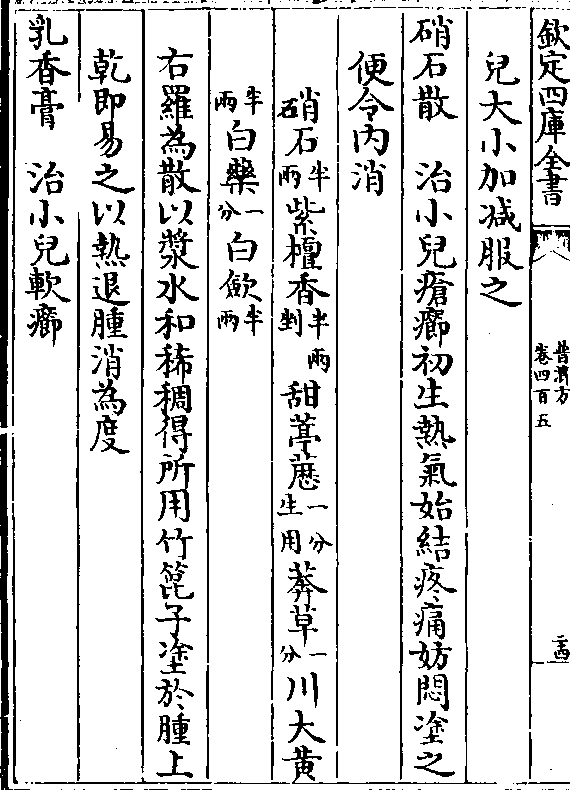 欽定四庫全書
普濟方
卷四百五
二四
兒大小加減服之
硝石散　治小兒瘡癤初生熱氣始結疼痛妨悶塗之
便令內消
硝石半兩 紫檀香半兩剉 甜葶藶一分生用 莽草一分 川大黃
半兩 白藥一分 白斂半兩
右羅為散以漿水和稀稠得所用竹篦子塗於腫上
乾即易之以熱退腫消為度
乳香膏　治小兒軟癤